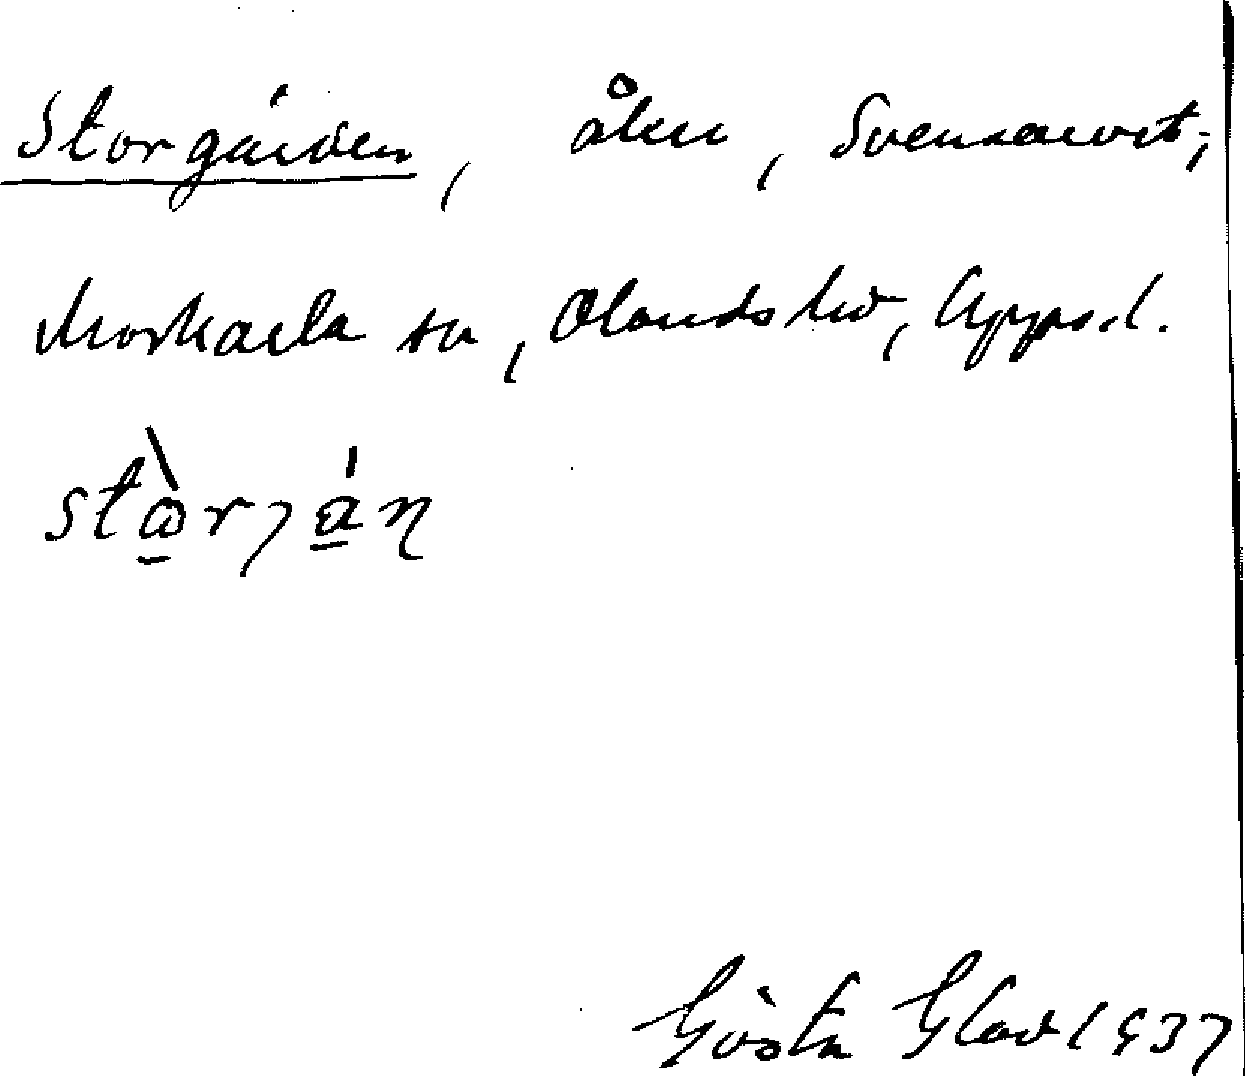 Storgården, åker, Svensarvet,
Morkarla sn, Olands hd, Upps.l.
Gösta Glad 1937